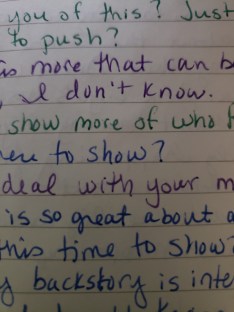 you of this? Just
to push?
more that can b
I don't know.
show more of who
to show?
deal with your m
is so great about a
this time to show?
backstory is inte